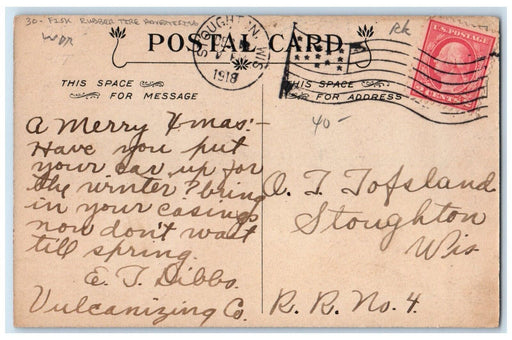 30- FISK RUBBER TIRE ADVERTISING
WDR
RK
POSTAL CARD
STOUGHTON, WIS
1918
U.S. POSTAGE
2 CENTS 2
THIS SPACE
FOR MESSAGE
THIS SPACE
FOR ADDRESS
40-
A Merry Xmas:-
Have you put
your car up for
the winter? bring
in your casings
now don't wait
till spring.
E. T. Dibbs.
Vulcanizing Co.
O. T. Tofsland
Stoughton
Wis
R. R. No. 4.